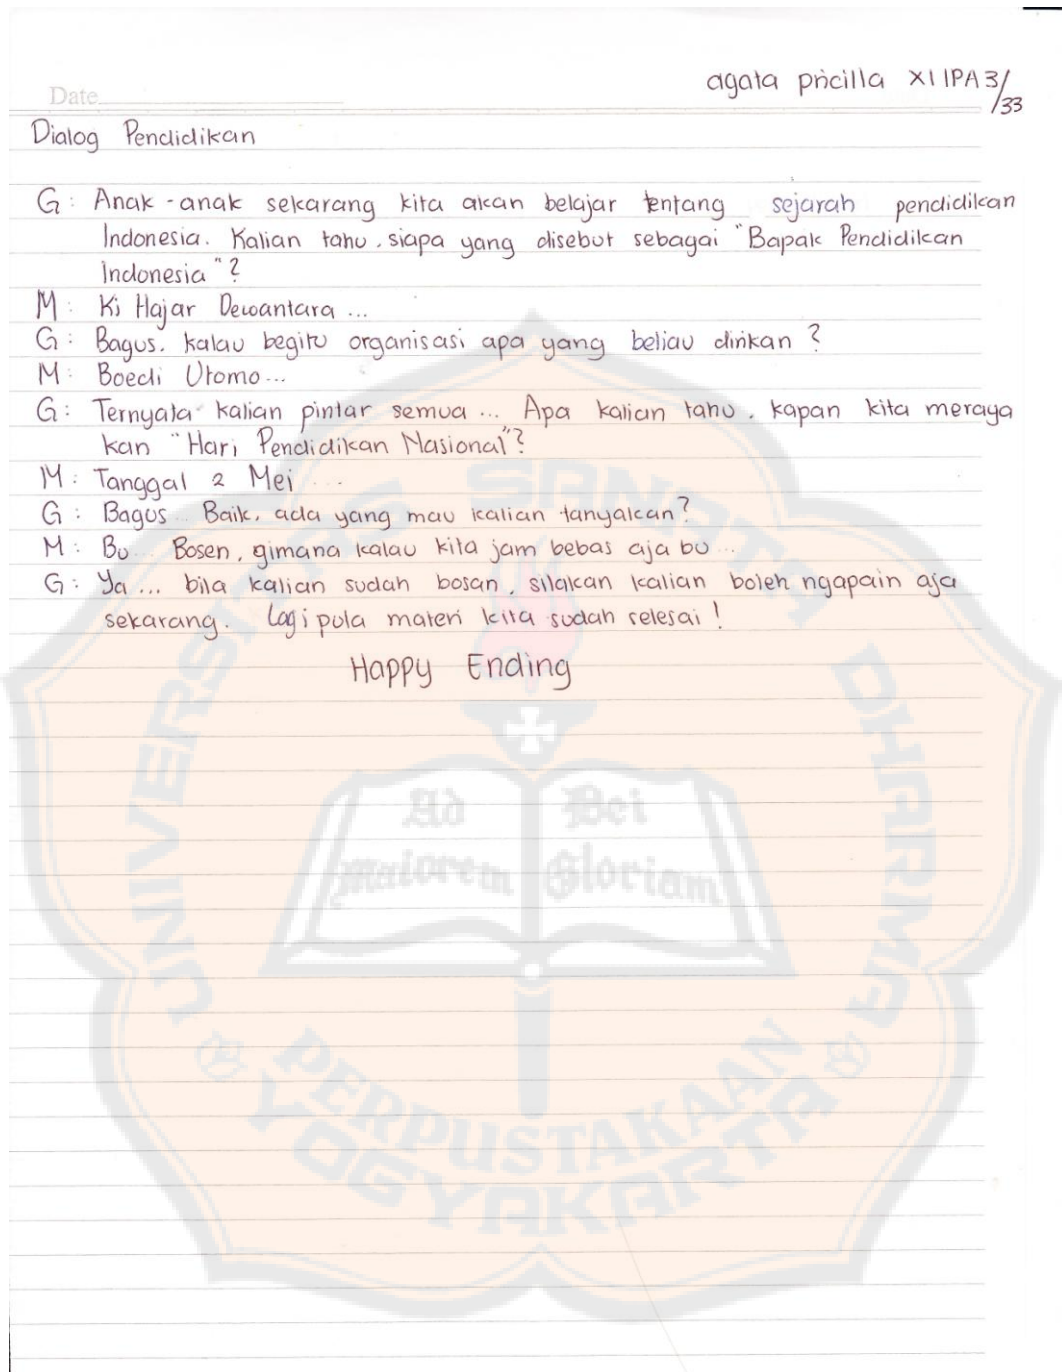 agata pricilla XI IPA 3/33
Date
Dialog Pendidikan
G : Anak - anak sekarang kita akan belajar tentang sejarah pendidikan
Indonesia. Kalian tahu, siapa yang disebut sebagai "Bapak Pendidikan
Indonesia"?
M : Ki Hajar Dewantara ...
G : Bagus. kalau begitu organisasi apa yang beliau dirikan ?
M : Boedi Utomo ...
G : Ternyata kalian pintar semua ... Apa kalian tahu, kapan kita meraya
kan "Hari Pendidikan Nasional"?
M : Tanggal 2 Mei ...
G : Bagus... Baik, ada yang mau kalian tanyakan?
M : Bu... Bosen, gimana kalau kita jam bebas aja bu ...
G : Ya ... bila kalian sudah bosan, silakan kalian boleh ngapain aja
sekarang. Lagi pula materi kita sudah selesai !
Happy Ending
UNIVERSITAS SANATA DHARMA
Ad Dei
maiorem Gloriam
PERPUSTAKAAN
YOGYAKARTA